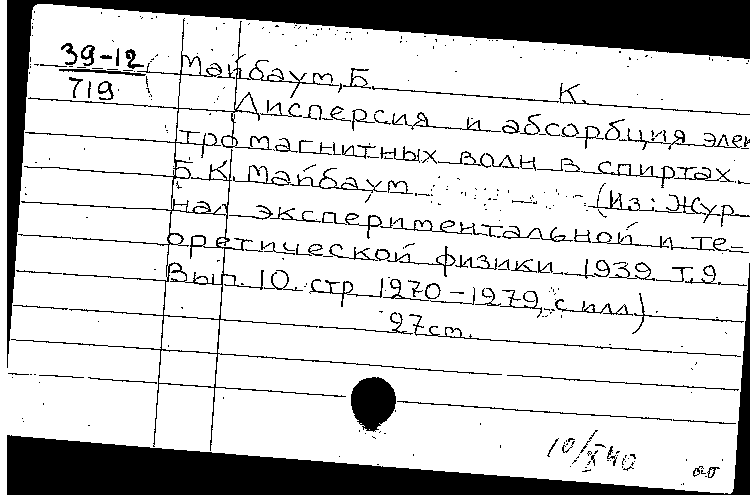 39-12
719
Майбаум, Б. К.
Дисперсия и абсорбция элек
тромагнитных волн в спиртах.
Б. К. Майбаум (Из: Жур
нал экспериментальной и те-
оретической физики. 1939. т. 9.
Вып. 10. стр 1270-1279, с илл.)
27 ст.
10/X 40